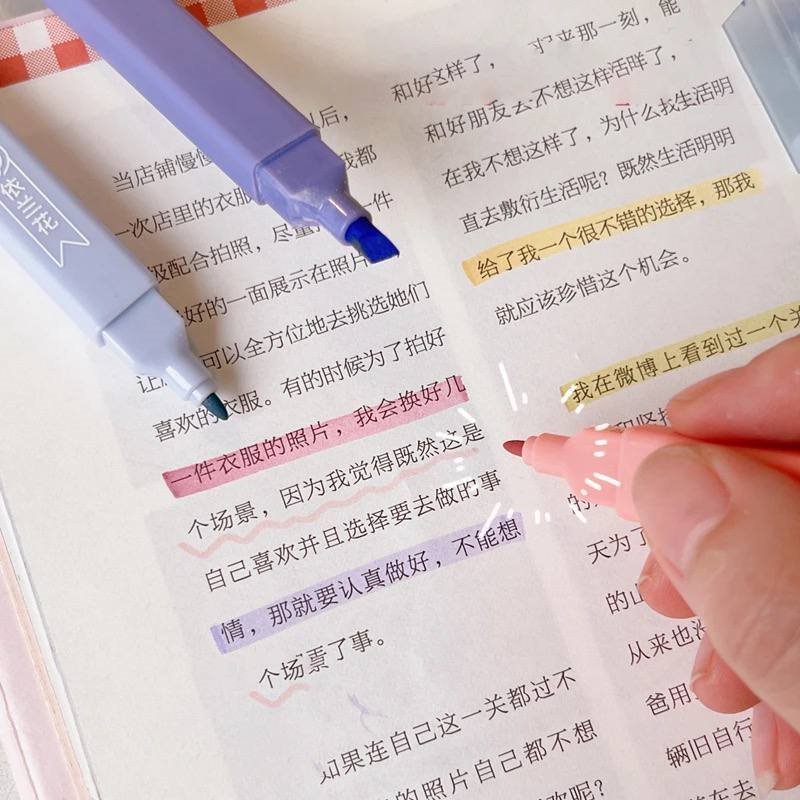 依兰花
以后，
当店铺慢慢
我都
一次店里的衣服
一件
级配合拍照，尽量
好的一面展示在照片
让
可以全方位地去挑选她们
喜欢的衣服。有的时候为了拍好
一件衣服的照片，我会换好几
个场景，因为我觉得既然这是
自己喜欢并且选择要去做的事
情，那就要认真做好，不能想
个场景了事。
如果连自己这一关都过不
的照片自己都不想
欢呢？
那一刻，能
和好这样了，
和好朋友去不想这样活咩了，
在我不想这样了，为什么我生活明
直去敷衍生活呢？既然生活明明
给了我一个很不错的选择，那我
就应该珍惜这个机会。
我在微博上看到过一个关
和坚持
的
天为了
的山
从来也没
爸用
辆旧自行
在去